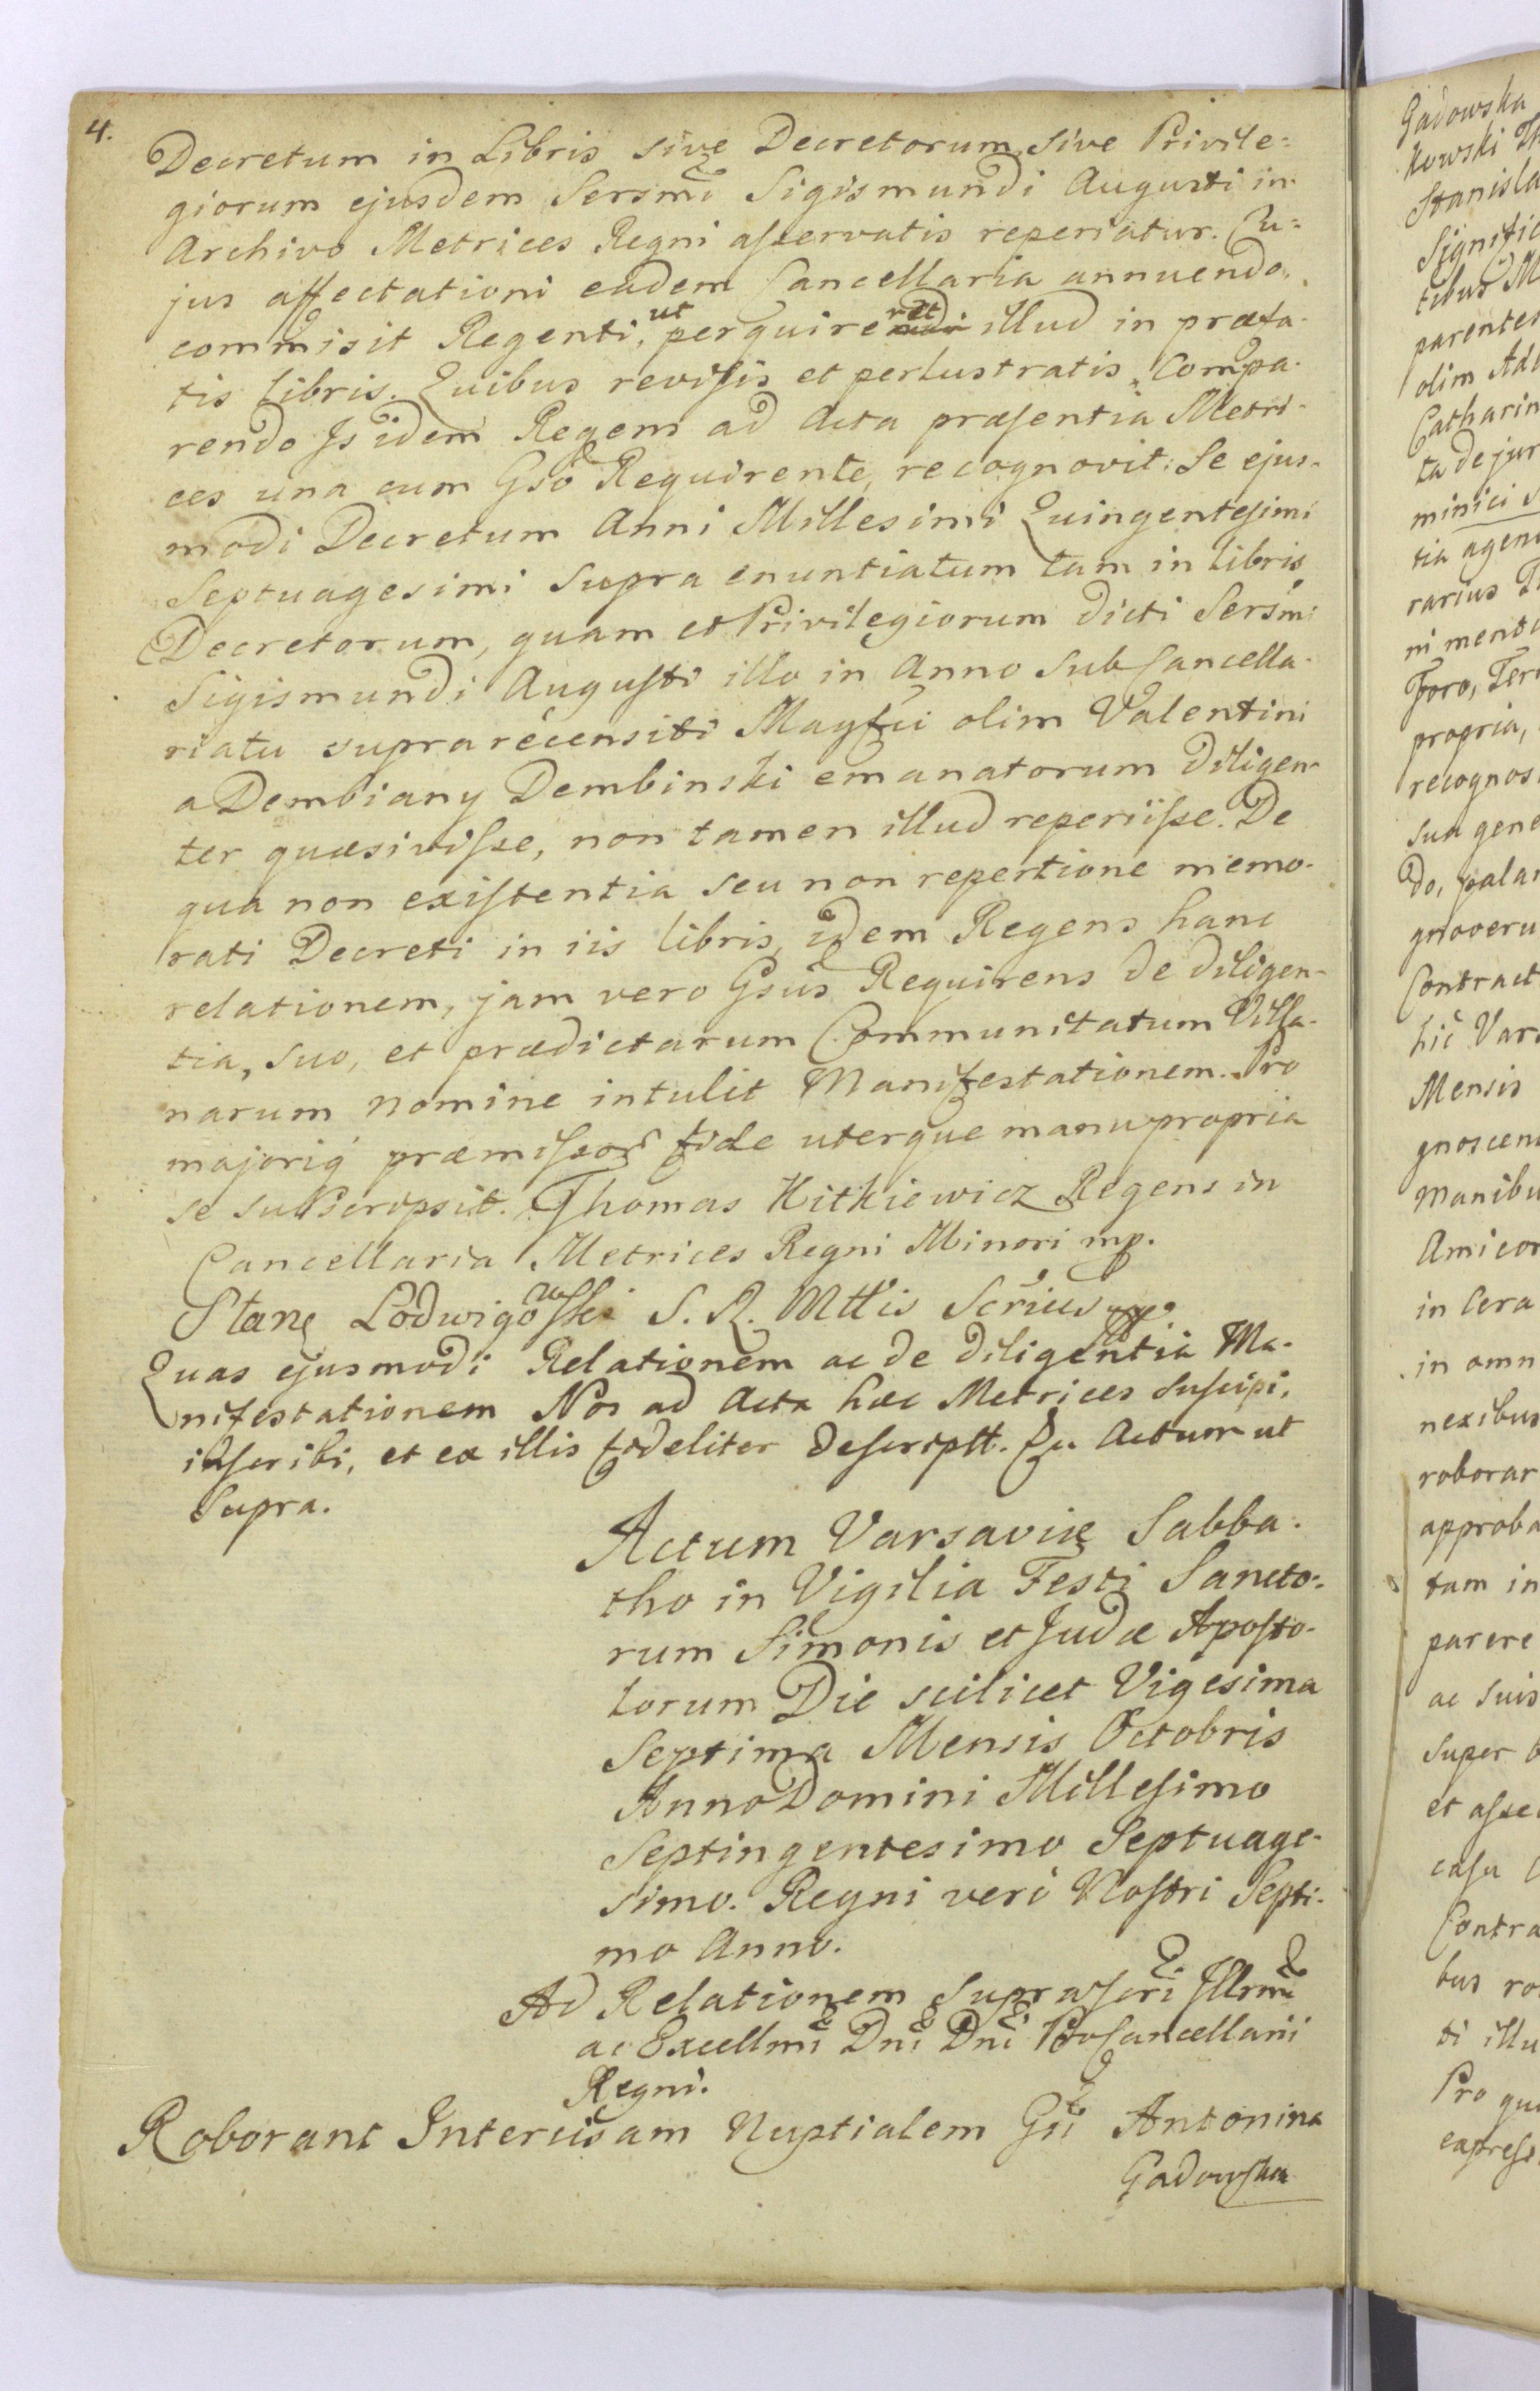 4.
Decretum in Libris sive Decretorum, sive Privile=
giorum ejusdem Sersmi Sigismundi Augusti in
Archivo Metrices Regni asservatis reperiatur. Cu=
jus affectationi eadem Cancellaria annuendo,
commisit Regenti, ut perquireret illud in præfa-
tis libris. Quibus revisis et perlustratis, Compa-
rendo Is idem Regens ad Acta præsentia Metri-
ces una cum Gso Requirente, recognovit: Se ejus-
modi Decretum Anni Millesimi Quingentesimi
Septuagesimi supra enuntiatum tam in libris
Decretorum, quam et Privilegiorum dicti Sersmi
Sigismundi Augusti illo in Anno sub Cancella-
riatu suprarecensiti Magfci olim Valentini
a Dembiany Dembinski emanatorum diligen-
ter quæsivisse, non tamen illud reperiisse. De
qua non existentia seu non repertione memo-
rati Decreti in iis libris, idem Regens hanc
relationem, jam vero Gsus Requirens de diligen-
tia, suo, et prædictarum Communitatum Villa-
narum nomine intulit Manifestationem. Pro
majoriq præmissor fide uterque manu propria
se subscripsit. Thomas Kitkiewicz Regens in
Cancellaria Metrices Regni Minori mp.
Stanę Lodwigowski S. R. Mttis Scrius mp.
Quas ejusmodi Relationem ac de diligentia Ma-
nifestationem Nos ad Acta hæc Metrices suscipi,
inscribi, et ex illis fideliter descriptt. Actum ut
Supra.
Actum Varsaviæ Sabba-
tho in Vigilia Festi Sancto-
rum Simonis et Judæ Aposto-
lorum Die scilicet Vigesima
Septima Mensis Octobris
Anno Domini Millesimo
Septingentesimo Septuage-
simo. Regni veró Nostri Septi-
mo Anno.
Ad Relationem suprascri Illrmi
ac Excellmi Dni Dni ProCancellarii
Regni.
Roborant Intercisam Nuptialem Gsi Antonina
Gadowska
Gadowska
kowski
Stanisla
Signific
tibus M
parentes
olim Ada
Catharin
ta de jur
minici
tia agen
rarius
ni
Foro, Ter
propria,
recognos
sua gene
do, pala
gnoveru
Contract
hic Vars
Mensis
gnoscen
manibu
Amicor
in Cera
in omn
nexibus
roborar
approba
tam in
parere
ac suis
super
et asse
casu
Contra
bus ro
ti illu
Pro qu
express